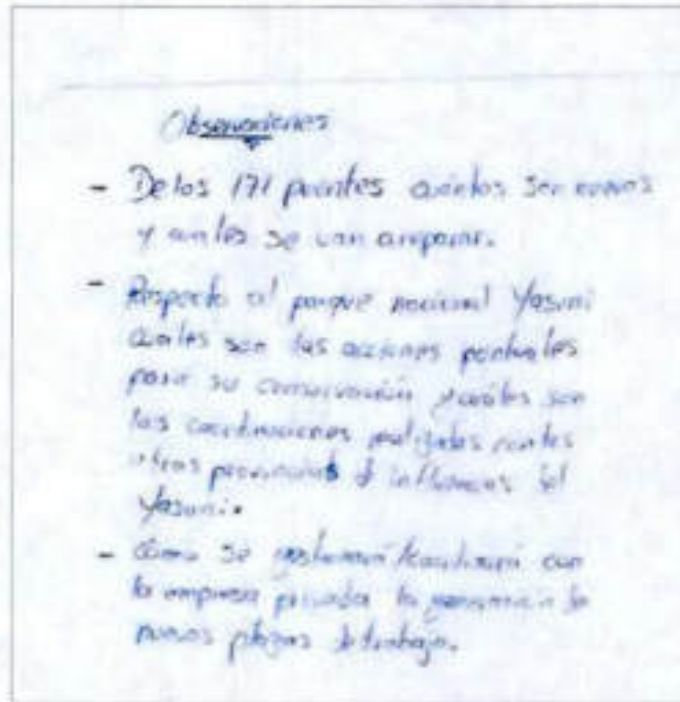 Observaciones
- De los 171 puentes cuántos son nuevos
y cuales se van a reparar.
- Respecto al parque nacional Yasuni
cuales son las acciones puntuales
para su conservación y cuáles son
las coordinaciones realizadas con las
otras provincias d influencias del
Yasuni.
- Cómo se gestionará/coordinará con
la empresa privada la generación de
nuevos plazas de trabajo.